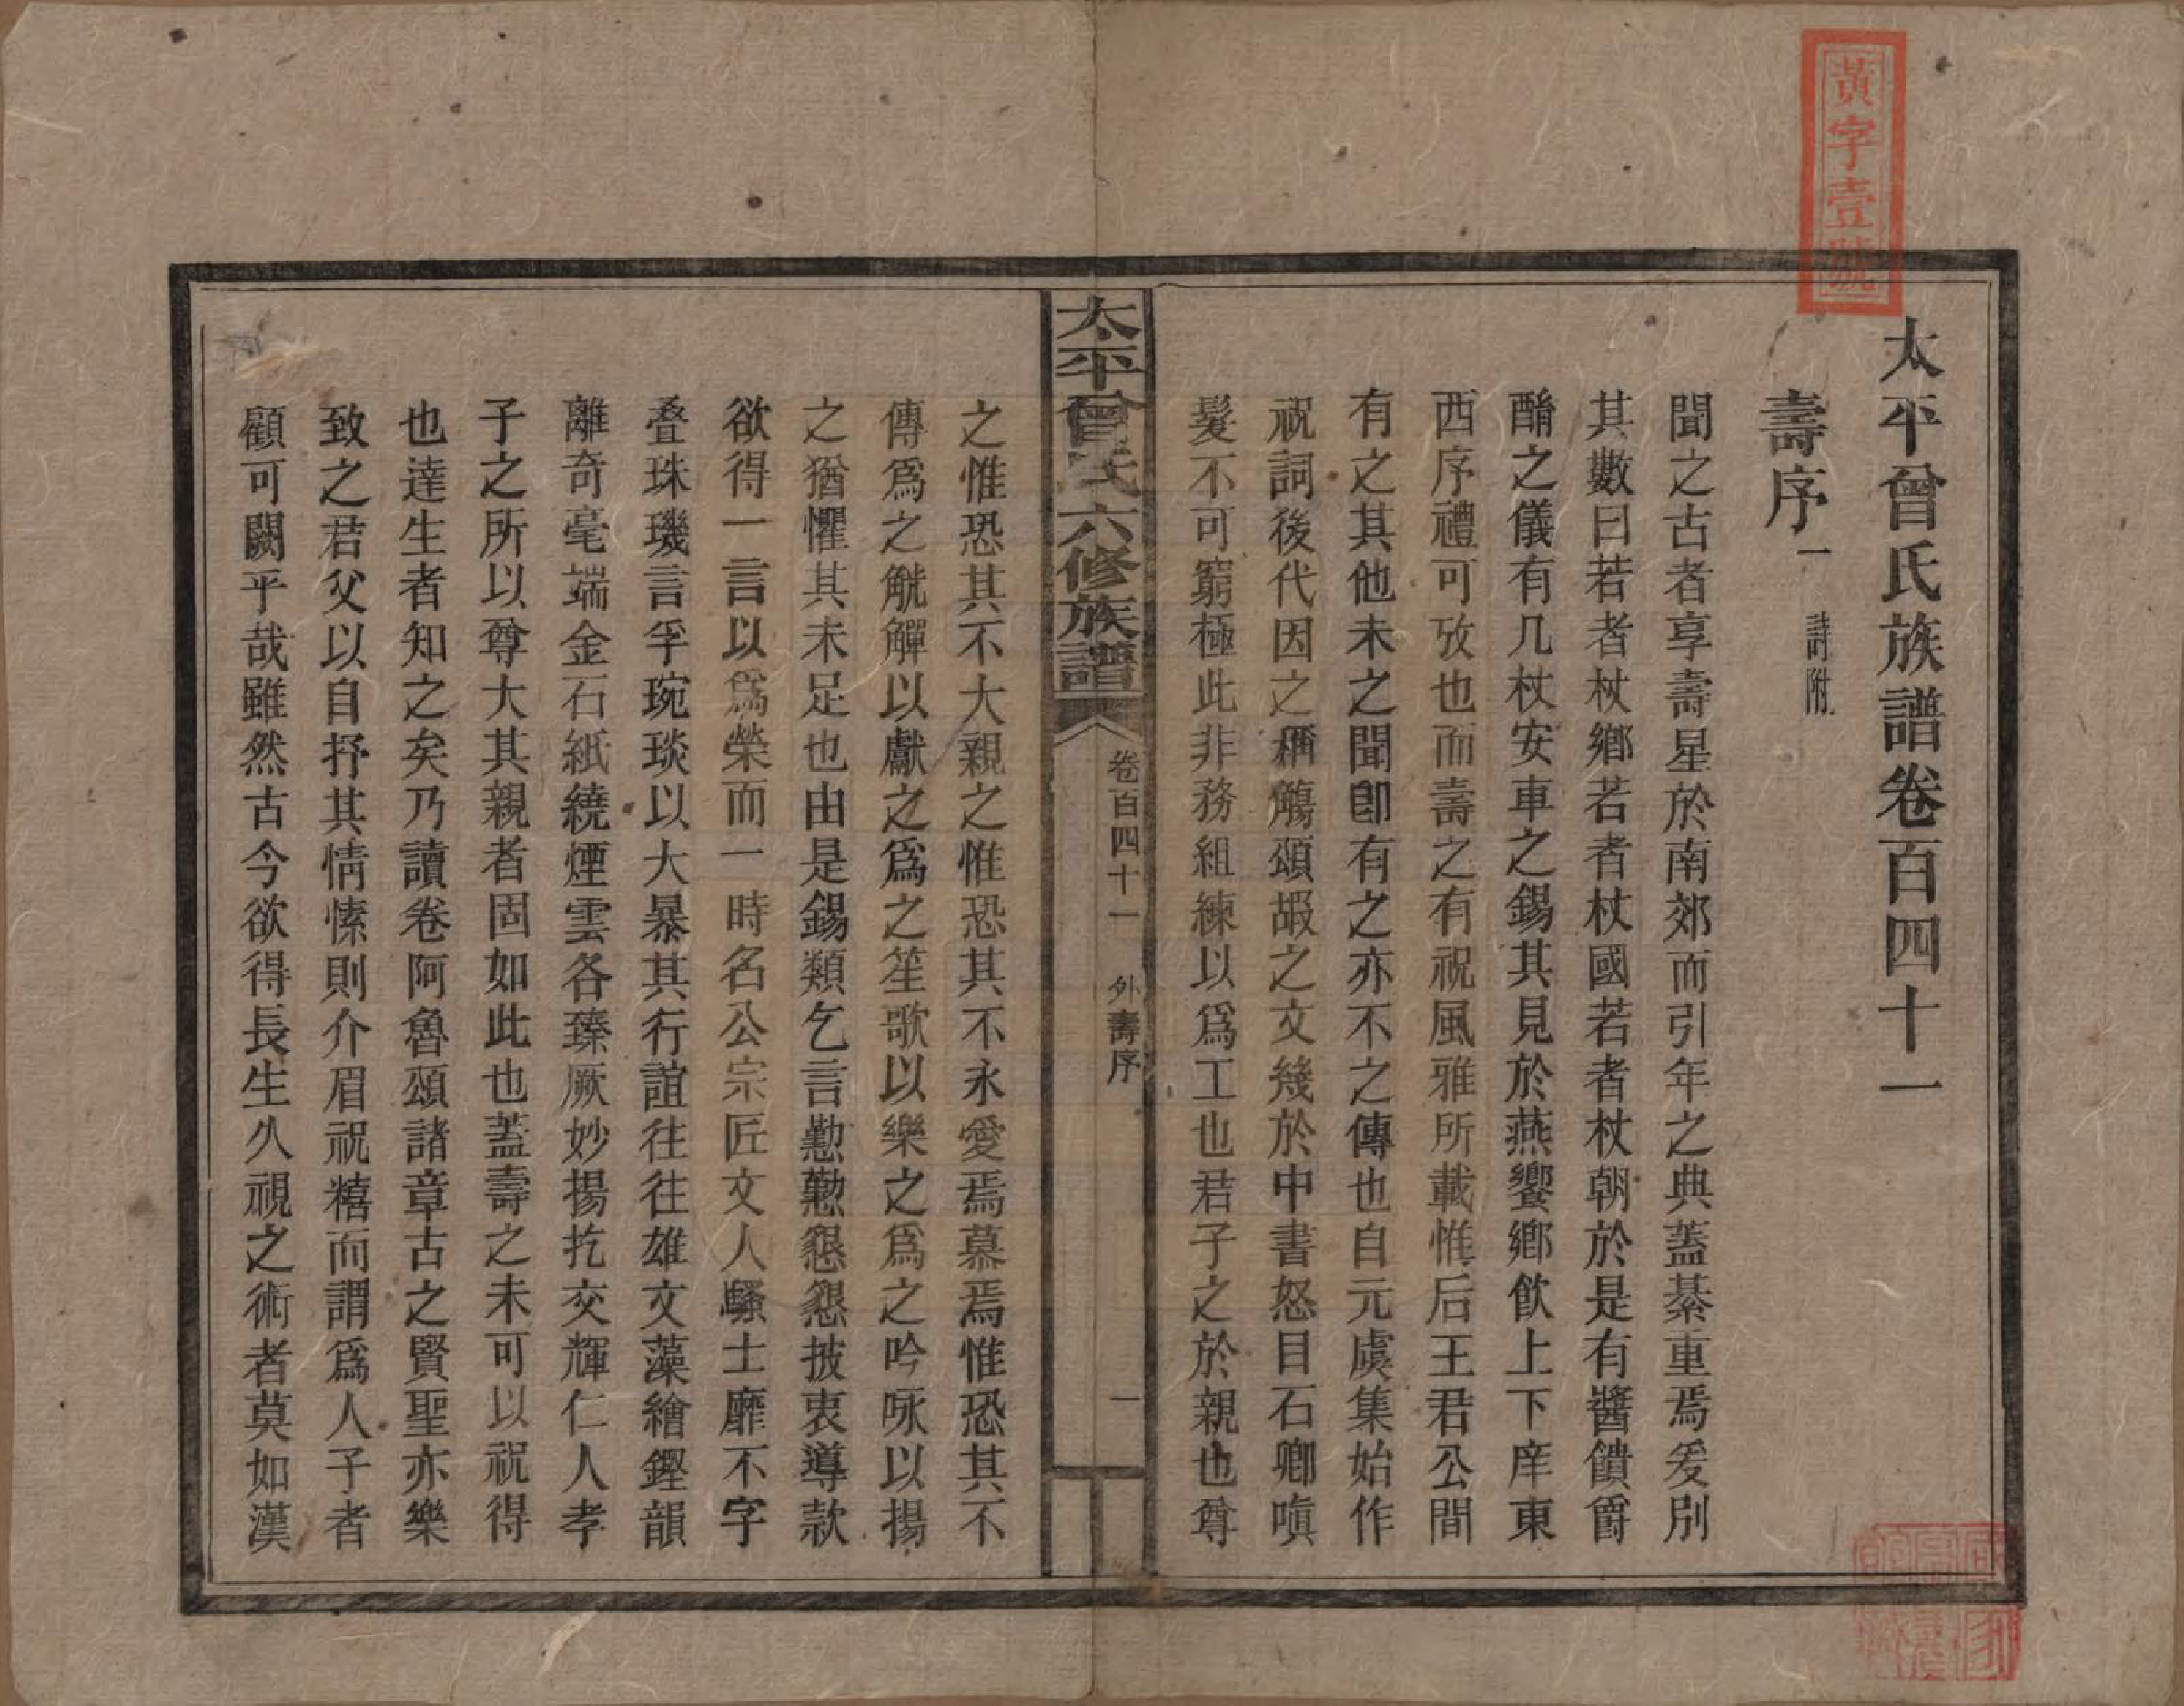 黃字壹號
太平曾氏族譜卷百四十一
壽序一 詩附
聞之古者享壽星於南郊而引年之典蓋綦重焉爰別
其數曰若者杖鄉若者杖國若者杖朝於是有醬饋爵
酳之儀有几杖安車之錫其見於燕饗鄉飲上下庠東
西序禮可攷也而壽之有祝風雅所載惟后王君公間
有之其他未之聞卽有之亦不之傳也自元虞集始作
祝詞後代因之稱觴頌嘏之文幾於中書怒目石卿嗔
髮不可窮極此非務組練以爲工也君子之於親也尊
太平曾氏六修族譜 卷百四十一 外壽序 一
之惟恐其不大親之惟恐其不永愛焉慕焉惟恐其不
傳爲之觥觶以獻之爲之笙歌以樂之爲之吟咏以揚
之猶懼其未足也由是錫類乞言懃懃懇懇披衷導款
欲得一言以爲榮而一時名公宗匠文人騷士靡不字
叠珠璣言孚琬琰以大暴其行誼往往雄文藻繪鏗韻
離奇毫端金石紙繞煙雲各臻厥妙揚扢交輝仁人孝
子之所以尊大其親者固如此也蓋壽之未可以祝得
也達生者知之矣乃讀卷阿魯頌諸章古之賢聖亦樂
致之君父以自抒其情愫則介眉祝糦而謂爲人子者
顧可闕乎哉雖然古今欲得長生久視之術者莫如漢